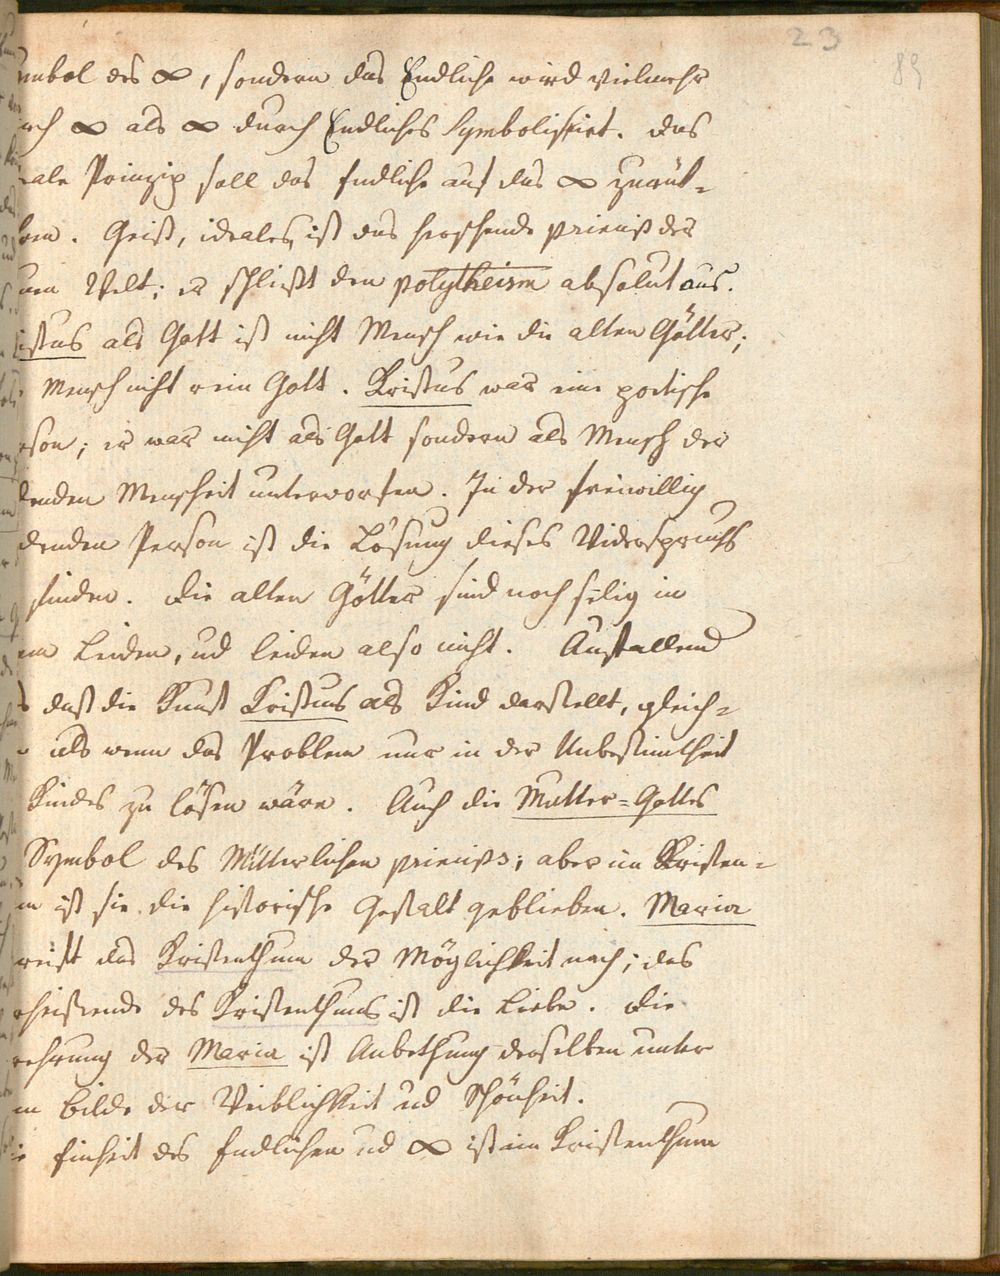 23
89
mbol des ∞, sondern das Endliche wird vielmehr
rch ∞ als ∞ durch Endliches Symbolisirt. Das
eale Prinzip soll das Endliche auf das ∞ zurük-
hren. Geist, ideales ist das herschende Prienz der
uen Welt; er schließt den Polytheism absolut aus.
istus als Gott ist nicht Mensch wie die alten Götter;
Mensch nicht rein Gott. Kristus war eine poetische
rson; er war nicht als Gott sondern als Mensch der
denden Menschheit unterworfen. In der freiwillig
denden Person ist die Lösung dieses Widerspruchs
finden. Die alten Götter sind noch selig in
em Leiden, ud leiden also nicht. Auffallend
s daß die Kunst Kristus als Kind darstellt, gleich-
als wenn das Problem nur in der Unbestimtheit
Kindes zu lösen wäre. Auch die Mutter-Gottes
Symbol des Mütterlichen Prienzs; aber im Kristen-
m ist sie die historische Gestalt geblieben. Maria
weist das Kristenthum der Möglichkeit nach; das
des Kristenthums ist die Liebe. Die
rehrung der Maria ist Anbethung derselben unter
m Bilde der Weiblichkeit ud Schönheit.
ie Einheit des Endlichen ud ∞ ist im Kristenthum